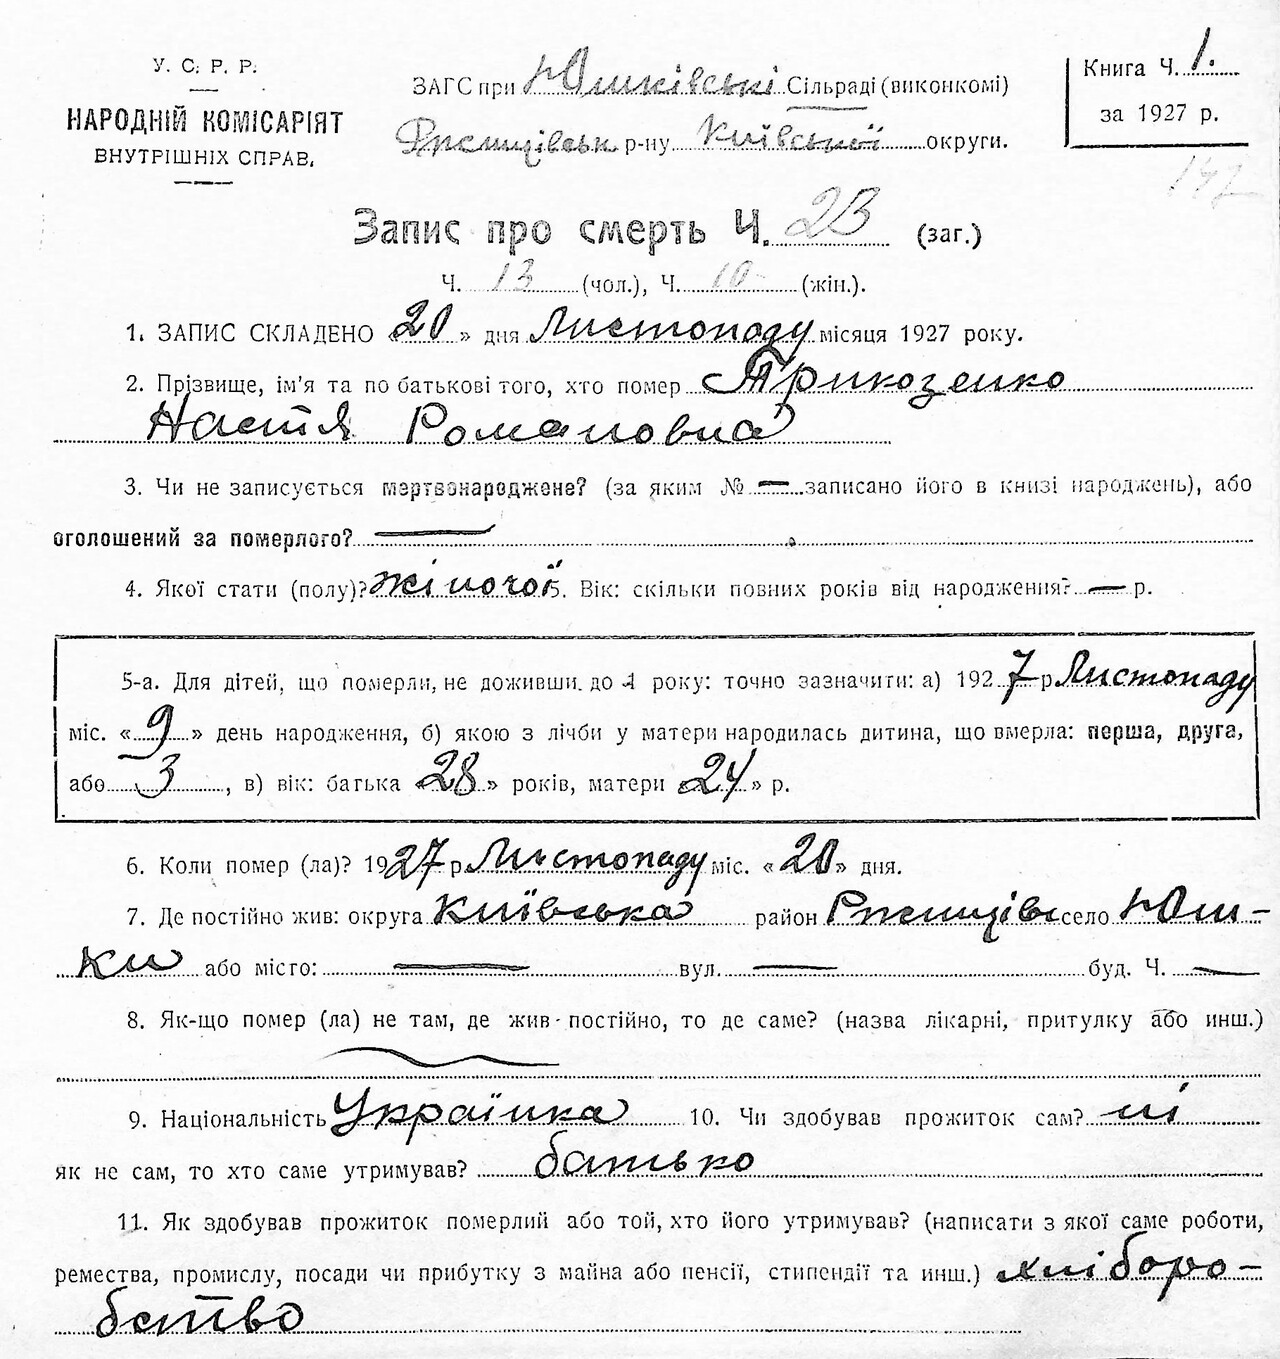 У. С. Р. Р.
НАРОДНІЙ КОМІСАРІЯТ
ВНУТРІШНІХ СПРАВ.
ЗАГС при Юшківські Сільраді (виконкомі)
Ржищівськ р-ну Київської округи.
Книга Ч. 1.
за 1927 р.
147
Запис про смерть Ч. 23 (заг.)
Ч. 13 (чол.), Ч. 10 (жін.).
1. ЗАПИС СКЛАДЕНО «20» дня Листопаду місяця 1927 року.
2. Прізвище, ім'я та по батькові того, хто помер Трикозенко
Настя Романовна
3. Чи не записується мертвонароджене? (за яким № — записано його в книзі народжень), або
оголошений за померлого? —
4. Якої стати (полу)? жіночої 5. Вік: скільки повних років від народження? — р.
5-а. Для дітей, що померли, не доживши до 1 року: точно зазначити: а) 1927 р Листопаду
міс. «9» день народження, б) якою з лічби у матери народилась дитина, що вмерла: перша, друга,
або 3, в) вік: батька «28» років, матери «24» р.
6. Коли помер (ла)? 1927 р Листопаду міс. «20» дня.
7. Де постійно жив: округа Київська район Ржищівс село Юш-
ки або місто: — вул. — буд. Ч. —
8. Як-що помер (ла) не там, де жив постійно, то де саме? (назва лікарні, притулку або инш.)
9. Національність Українка 10. Чи здобував прожиток сам? ні
як не сам, то хто саме утримував? батько
11. Як здобував прожиток померлий або той, хто його утримував? (написати з якої саме роботи,
ремества, промислу, посади чи прибутку з майна або пенсії, стипендії та инш.) хліборо-
бство